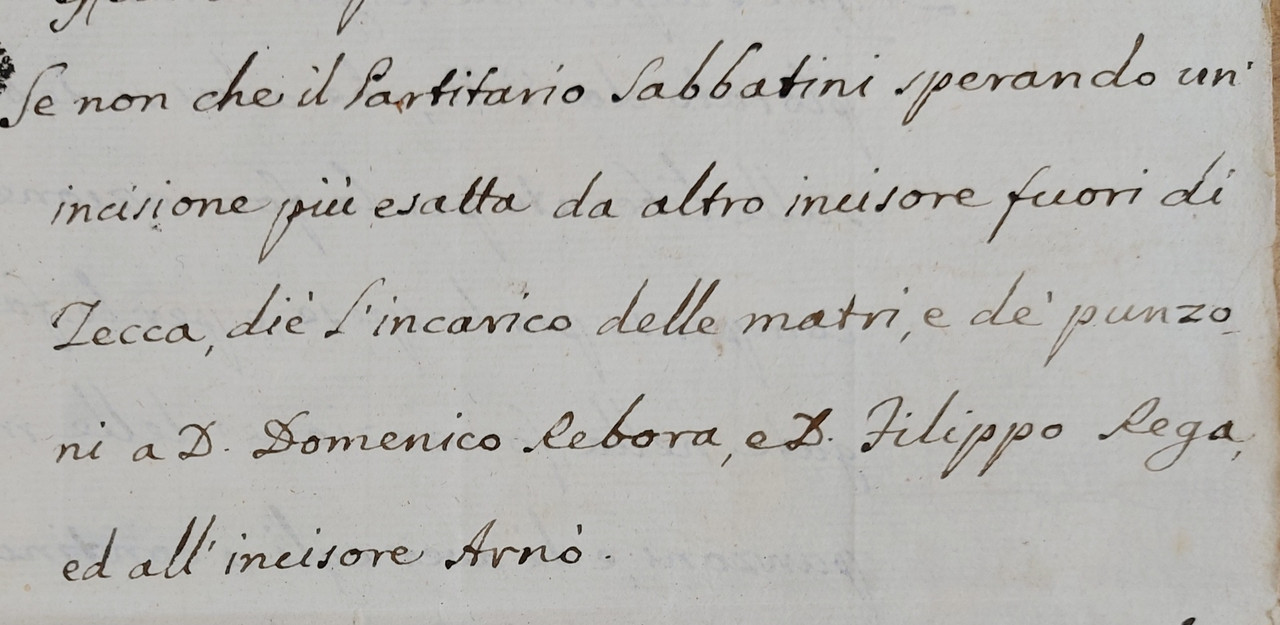 Se non che il Partitario Sabbatini sperando un'
incisione più esatta da altro incisore fuori di
Zecca, diè l'incarico delle matri, e de' punzo_
ni a D. Domenico Rebora, e D. Filippo Rega,
ed all' incisore Arnò.